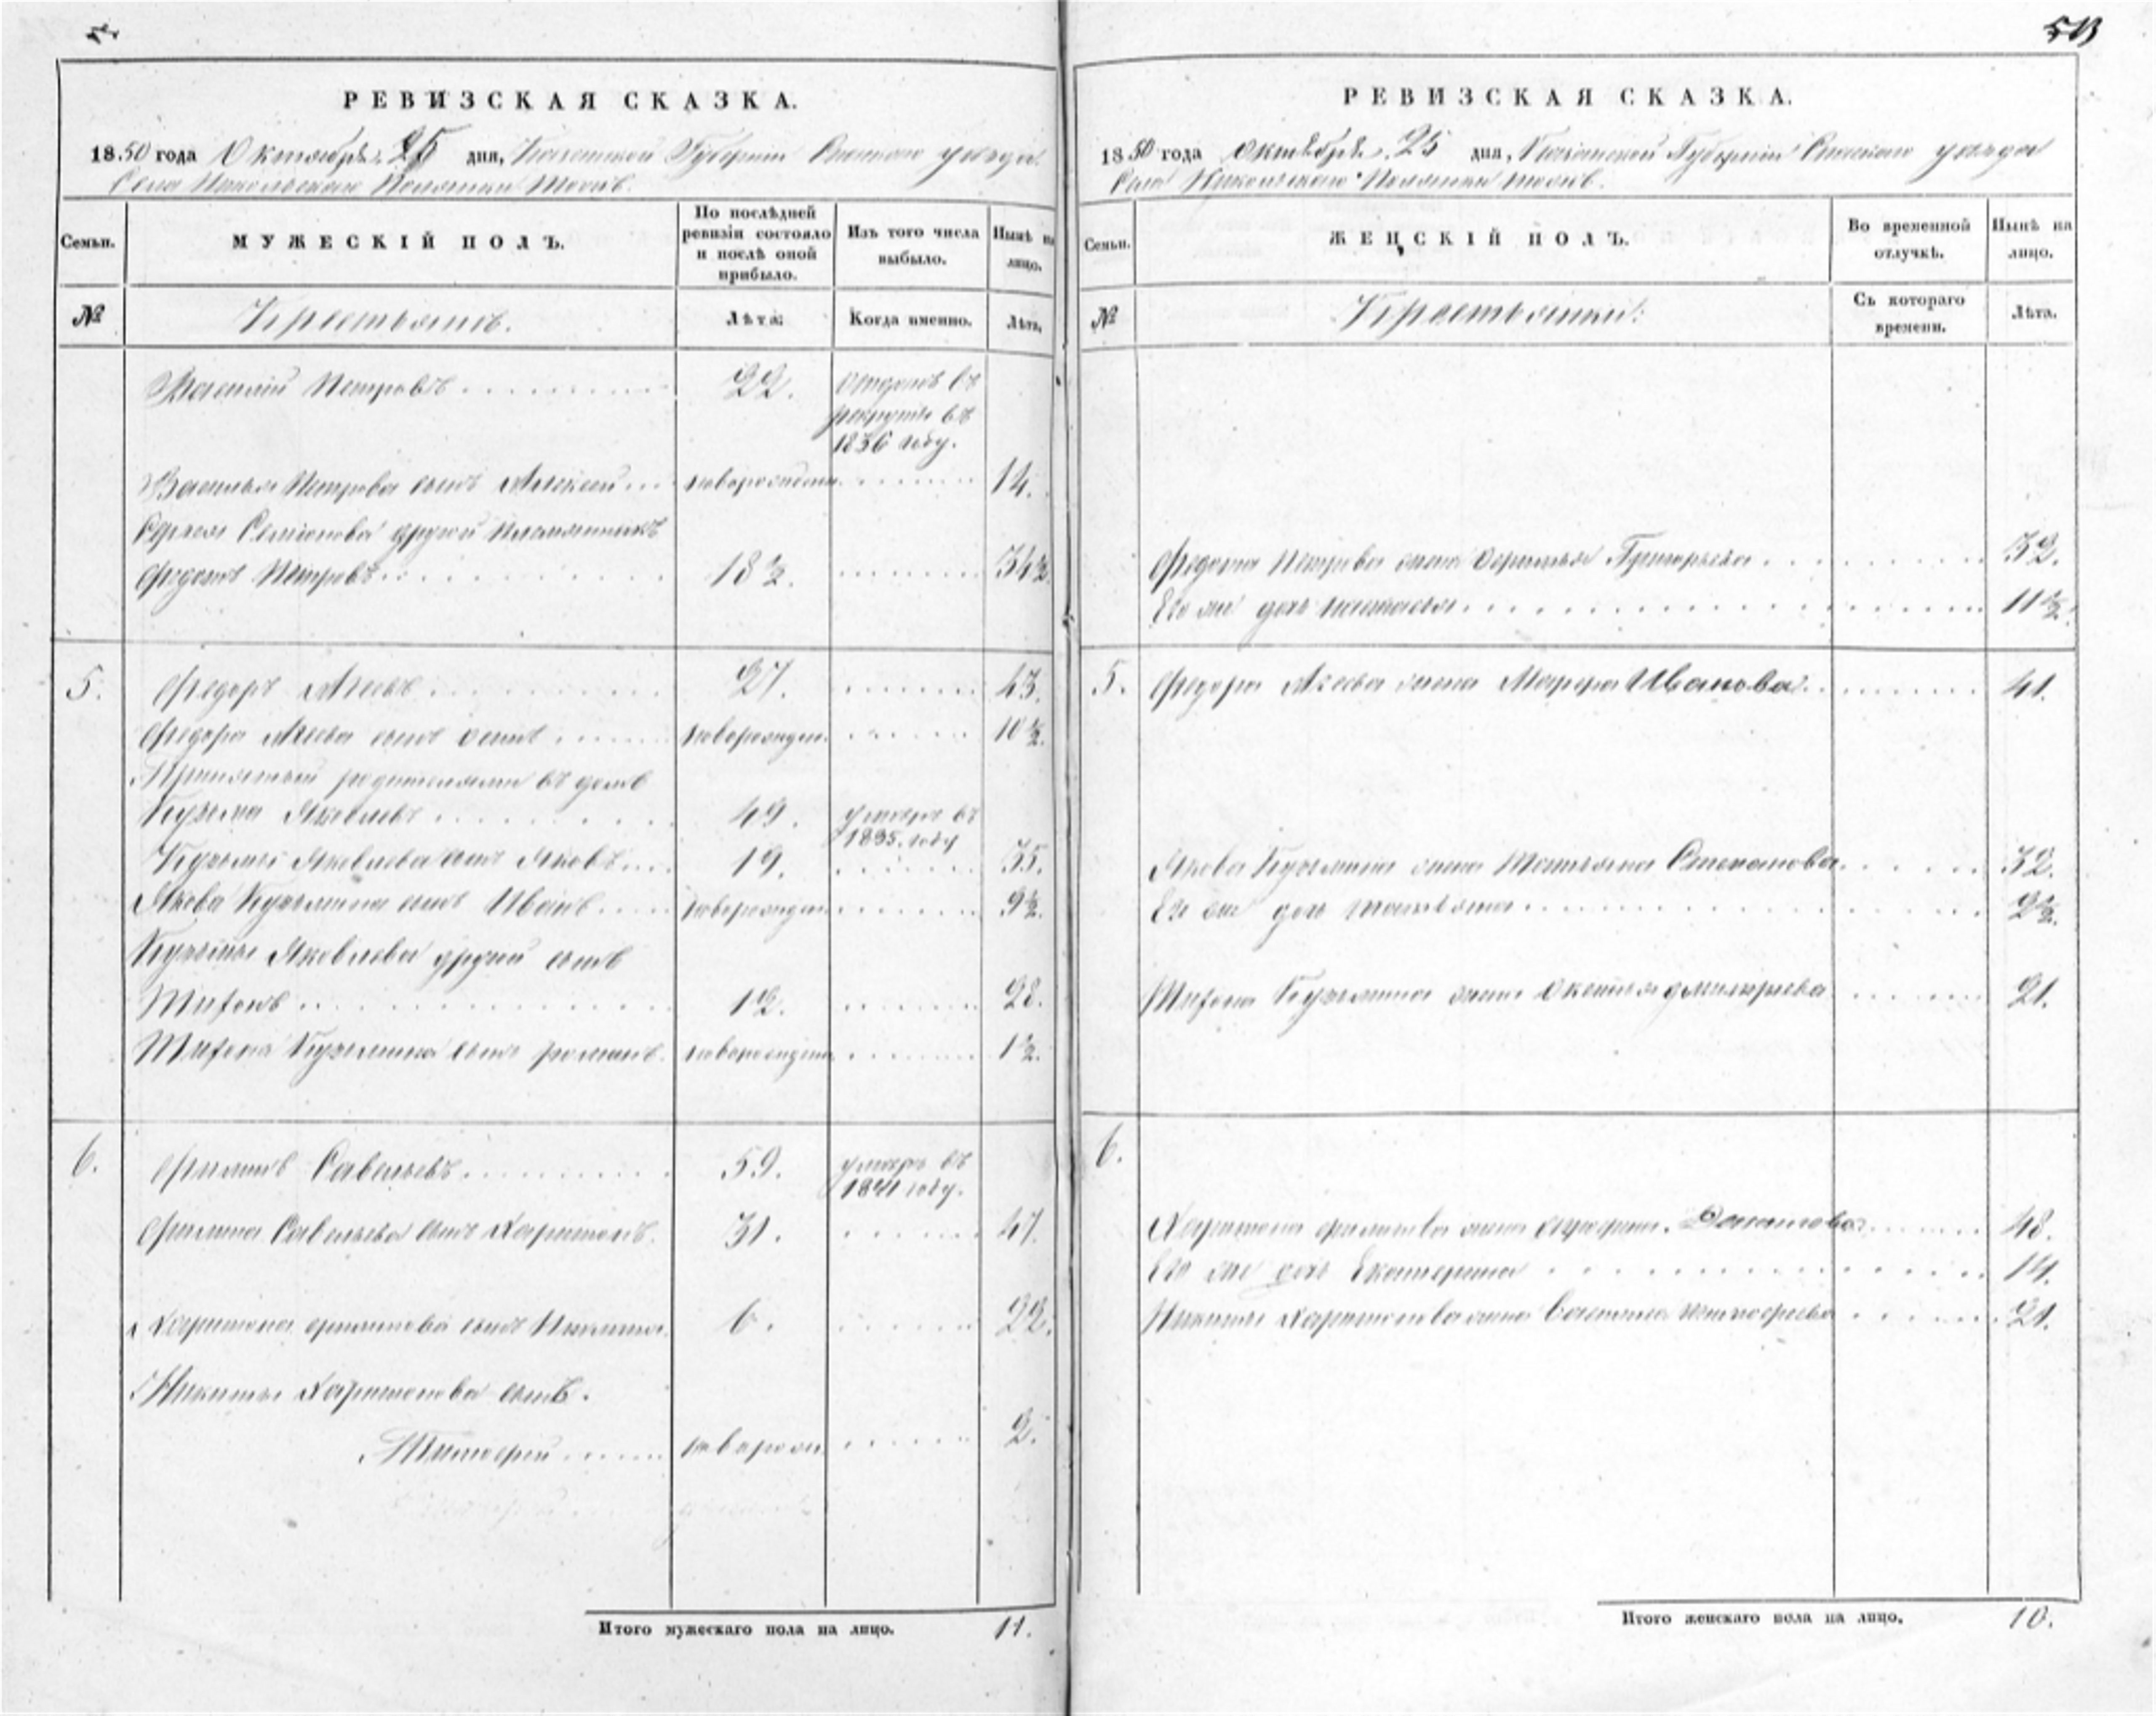 РЕВИЗСКАЯ СКАЗКА.
1850 года Октября 25 дня, Казанской Губернии Спаскаго уезда
Села Никольскаго Полянки тожъ.
Семьи.
МУЖЕСКІЙ ПОЛЪ.
По послѣдней ревизіи состояло и послѣ оной прибыло.
Изъ того числа выбыло.
Нынѣ на лицо.
№
Крестьянъ.
Лѣта.
Когда именно.
Лѣта.
Василий Петровъ 22. отданъ въ рекруты въ 1836 году.
Василья Петрова сынъ Алексей новорожден 14.
Сергея Семионова другой племянникъ
Федотъ Петровъ 18½. 34½.
5. Федоръ Агеевъ 27. 43.
Федора Агеева сынъ Осипъ новорожден. 10½.
Принятый родителями въ домъ
Кузьма Яковлевъ 49. умеръ въ 1835. году
Кузьмы Яковлева сынъ Яковъ 19. 35.
Якова Кузьмина сынъ Иванъ новорожден 9½.
Кузьмы Яковлева другой сынъ
Тихонъ 12. 28.
Тихона Кузьмина сынъ романъ новорожден 1½.
6. Филипъ Савельевъ 59. умеръ въ 1841 году.
Филипа Савельева сынъ Харитонъ. 31. 47.
Харитона филипова сынъ Никита. 6. 22.
Никиты Харитонова сынъ.
Тимофей новорож 2.
Итого мужескаго пола на лицо. 11.
РЕВИЗСКАЯ СКАЗКА.
1850 года октября 25 дня, Казанской Губернии Спаскаго уезда
Села Никольскаго Полянки тожъ.
Семьи.
ЖЕНСКІЙ ПОЛЪ.
Во временной отлучкѣ.
Нынѣ на лицо.
№
Крестьянки:
Съ котораго времени.
Лѣта.
Федота Петрова жена Григорьева 32.
Его же дочь Настасья 11½.
5. Федора Агеева жена Марфа Иванова 41.
Якова Кузьмина жена Татьяна Степанова 32.
Его же дочь 2½.
Тихона Кузьмина жена Оксинья дмитриева 21.
6.
Харитона филипова жена Данилова 48.
Его же дочь Екатерина 14.
Никиты Харитонова жена тимофиева 21.
Итого женскаго пола на лицо. 10.